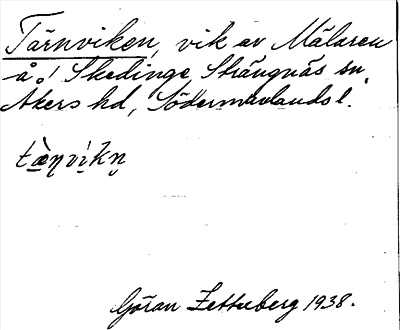 Tärnviken, vik av Mälaren
å o! Skedinge, Strängnäs sn,
Åkers hd, Södermanlands l.
tæ̀ṇvikn̥
Göran Zetterberg 1938.